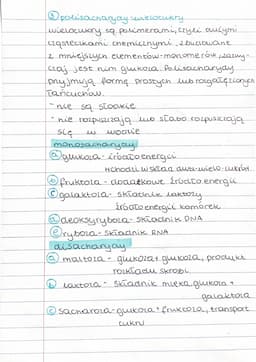 ③ polisacharydy-wielocukry
wielocukry są polimerami, czyli dużymi
cząsteczkami chemicznymi, zbudowane
z mniejszych elementów-monomerów, zazwy-
czaj jest nim glukoza. Polisacharydy
przyjmują formę prostych lub rozgałęzionych
łańcuchów.
- nie są słodkie
- nie rozpuszczają lub słabo rozpuszczają
się w wodzie
monosacharydy
a) glukoza - źródło energii
wchodzi w skład dwu-wielo-cukrów
b) fruktoza - dodatkowe źródło energii
c) galaktoza - składnik laktozy
źródło energii komórek
d) deoksyryboza - składnik DNA
e) ryboza - składnik RNA
disacharydy
a) maltoza - glukoza + glukoza, produkt
rozkładu skrobi
b) laktoza - składnik mleka, glukoza +
galaktoza
c) sacharoza - glukoza + fruktoza, transport
cukru